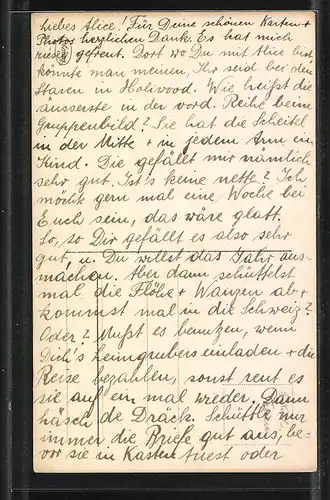 Liebes Alice! Für Deine schönen Karten +
Photos herzlichen Dank. Es hat mich
riesig gefreut. Dort wo Du mit Alice bist,
könnte man meinen, Ihr seid bei den
Staren in Holivood. Wie heißt die
äusserste in der vord. Reihe beim
Gruppenbild? Sie hat die Scheitel
in der Mitte + in jedem Arm ein
Kind. Die gefällt mir nämlich
sehr gut. Ist's keine nette? Ich
möcht gern mal eine Woche bei
Euch sein, das wäre glatt.
So, so Dir gefällt es also sehr
gut, u. Du willst das Jahr aus-
machen. Aber dann schüttelst
mal die Flöhe + Wanzen ab +
kommst mal in die Schweiz?
Oder? Mußt es benutzen, wenn
Dich's Leimgrubers einladen + die
Reise bezahlen, sonst rent es
sie auf ein mal wieder. Dann
häsch de Dräck. Schüttle nur
immer die Briefe gut aus, be-
vor sie in Kasten tuest oder